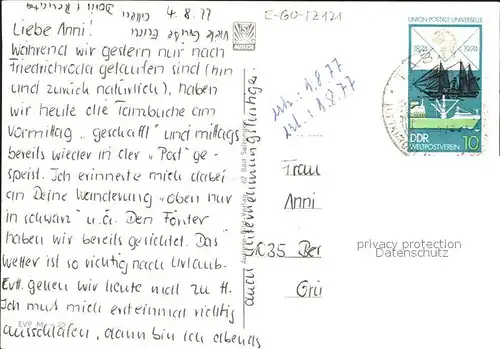 4.8.77
Liebe Anni!
Während wir gestern nur nach
Friedrichroda gelaufen sind (hin
und zurück natürlich), haben
wir heute die Tambuche am
Vormittag „geschafft" und mittags
bereits wieder in der „Post" ge-
speist. Ich erinnerte mich dabei
an Deine Wanderung „oben nur
in schwarz" u.ä. Den Förster
haben wir bereits gesichtet. Das
Wetter ist so richtig nach Urlaub.
Evtl. gehen wir heute mal zu H.
Ich muß mich ersteinmal richtig
ausschlafen, dann bin ich abends
auch unternehmungslustiger.
Viele Grüße Euren
allen
E-GO-IZ121
erh.: 1.8.77
erl.: 1.8.77
UNION POSTALE UNIVERSELLE
1874 1974
DDR
WELTPOSTVEREIN 10
Frau
Anni
1035 Ber
Grü
privacy protection
Datenschutz
EVP M